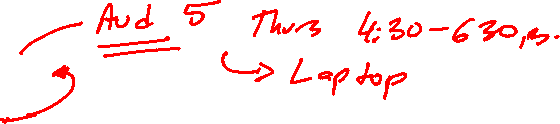 Aud 5 Thurs 4:30-630pm.
Laptop